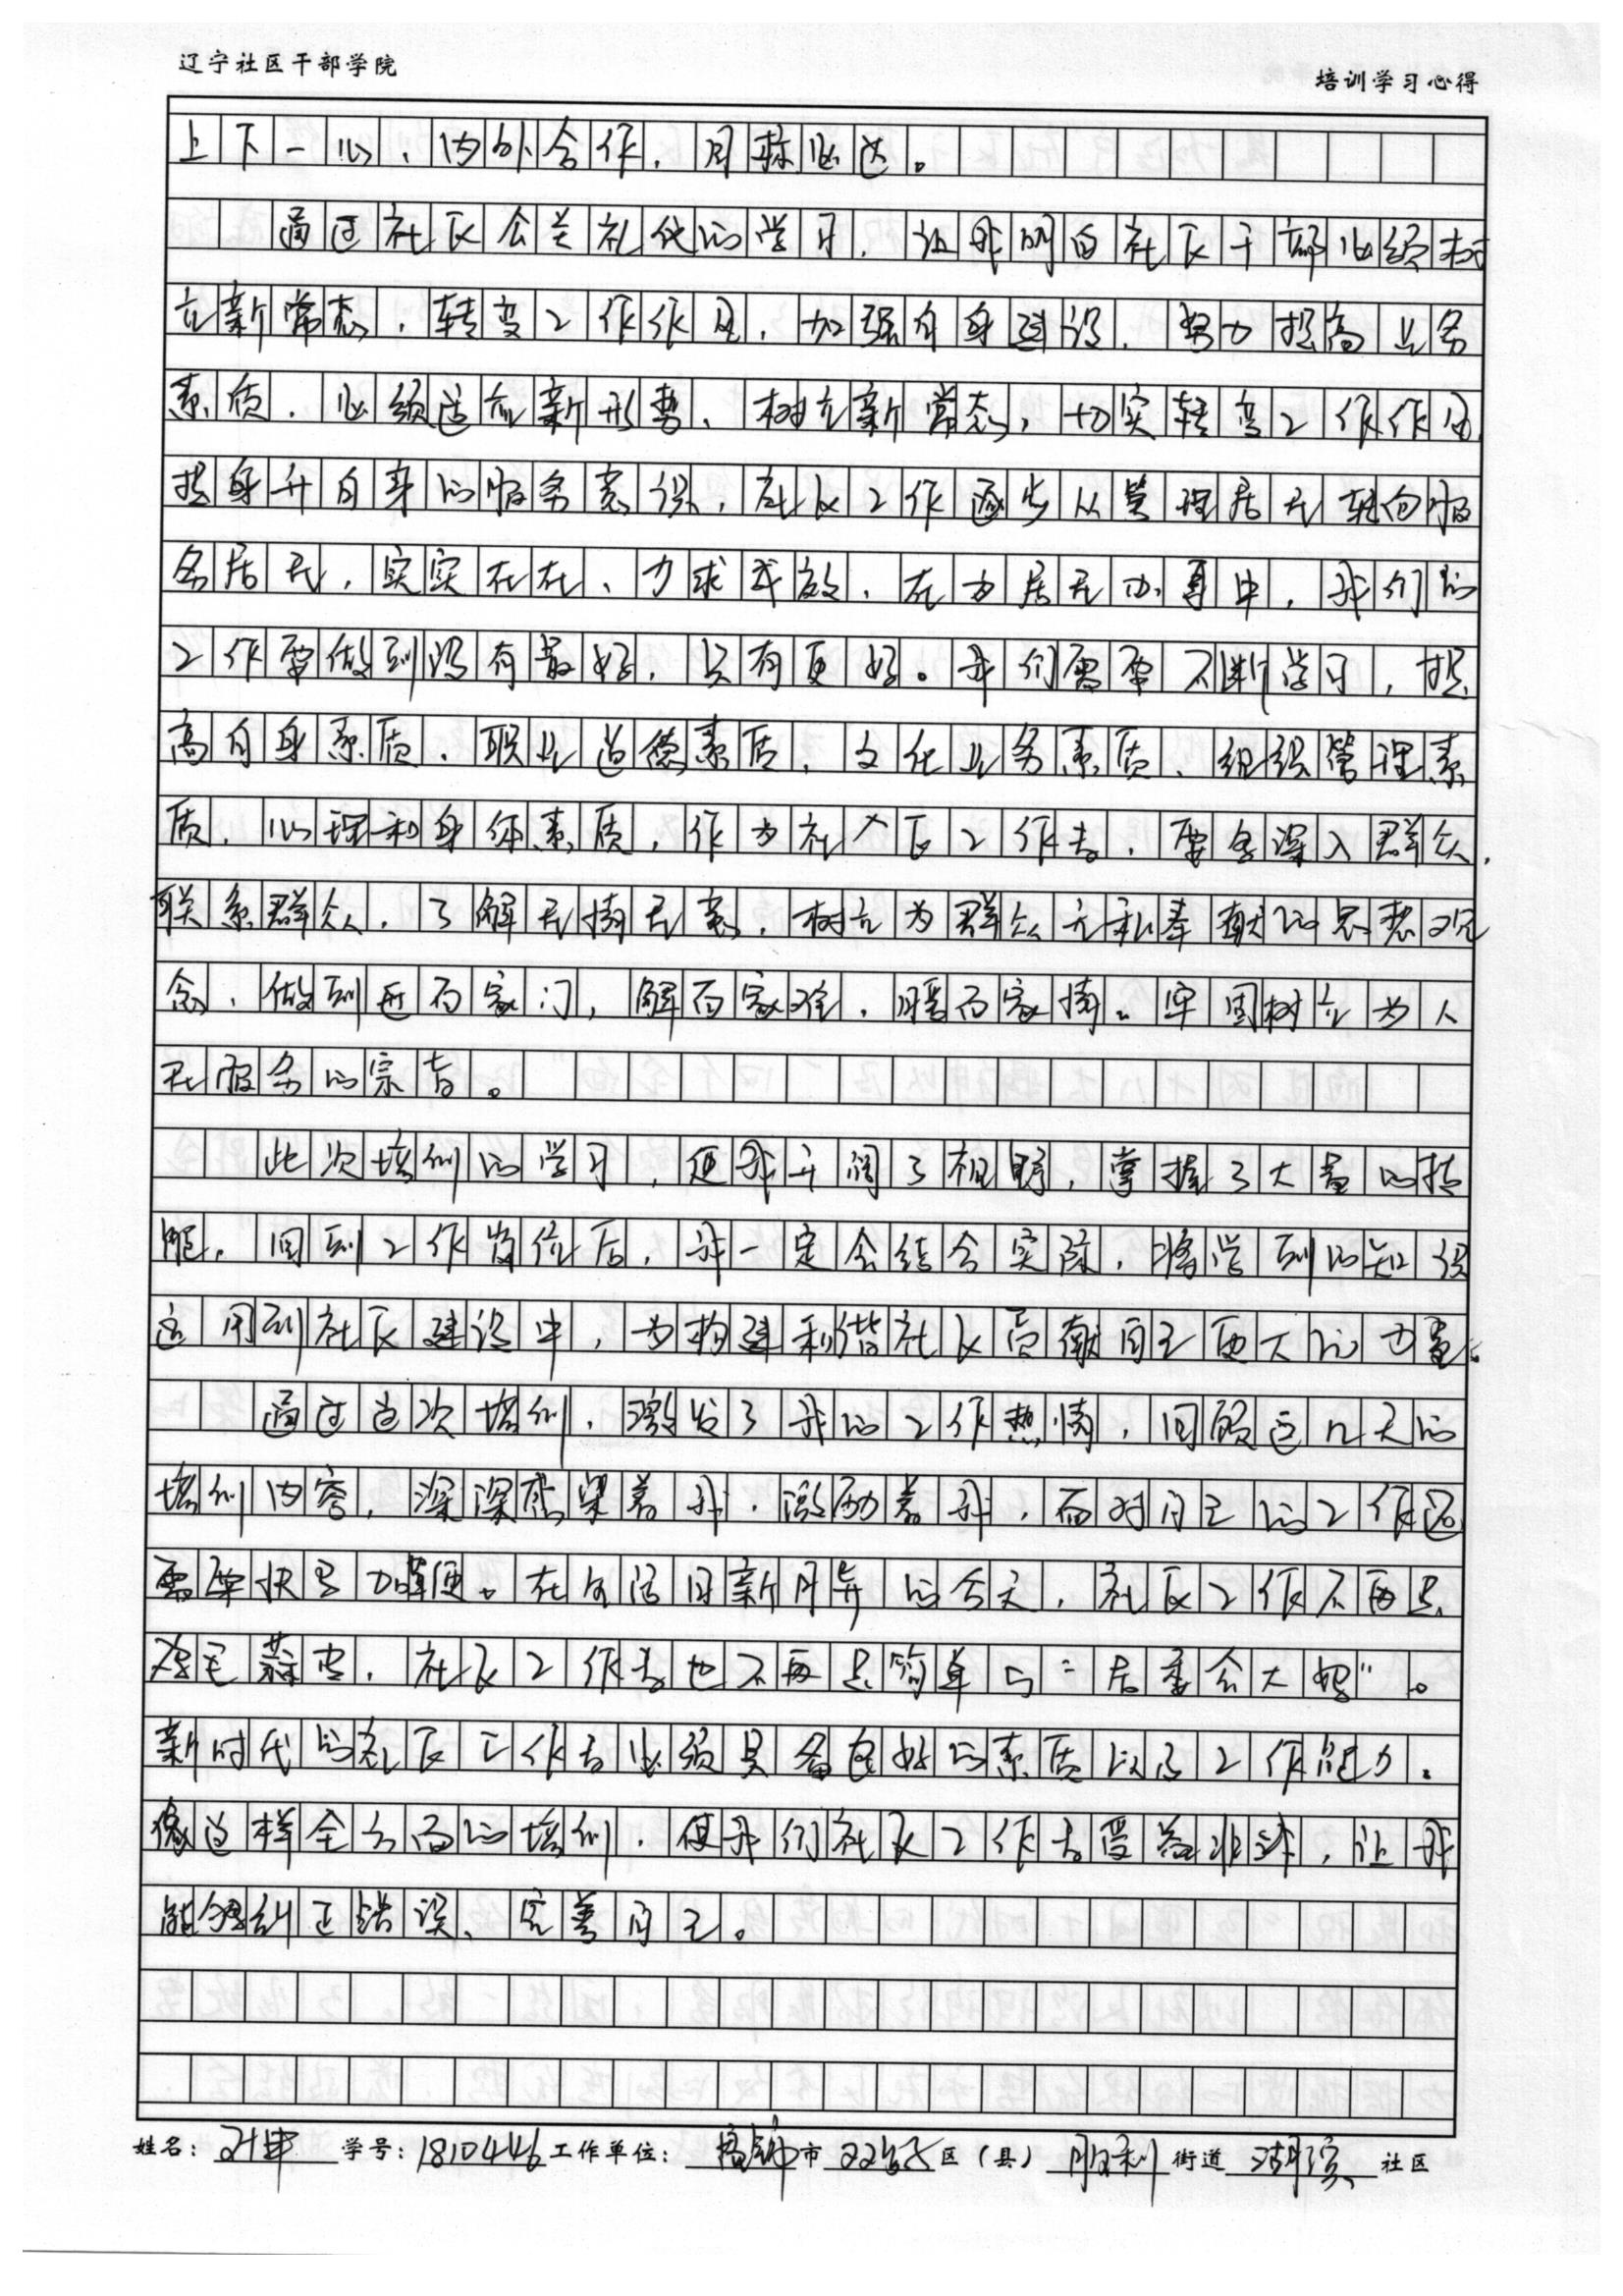 辽宁社区干部学院
培训学习心得
上下一心、内外合作,目标必达。
通过社区公关礼仪的学习,让我明白社区干部必须树
立新常态,转变工作作风,加强自身建设,努力提高业务
素质,必须适应新形势、树立新常态,切实转变工作作风
提身升自身的服务意识,社区工作逐步从管理居民转向服
务居民,实实在在、力求实效,在为居民办事中,我们的
工作要做到没有最好,只有更好。我们需要不断学习,提
高自身素质、职业道德素质、文化业务素质、组织管理素
质、心理和身体素质,作为社区工作者,要会深入群众,
联系群众,了解民情民意,树立为群众无私奉献的思想观
念,做到进百家门,解百家难,暖百家情。牢固树立为人
民服务的宗旨。
此次培训的学习,使我开阔了视野,掌握了大量的技
能,回到工作岗位后,我一定会结合实际,将学到的知识
运用到社区建设中,为构建和谐社区贡献自己更大的力量。
通过这次培训,激发了我的工作热情,回顾这几天的
培训内容,深深感染着我,激励着我,面对自己的工作还
需要快马加鞭。在生活日新月异的今天,社区工作不再是
鸡毛蒜皮,社区工作者也不再是简单的“居委会大妈”。
新时代的社区工作者必须具备良好的素质以及工作能力。
像这样全方面的培训,使我们社区工作者受益非浅,让我
能够纠正错误、完善自己。
姓名: 学号:1810446 工作单位:盘锦市 双台子区(县)胜利街道 湖滨社区